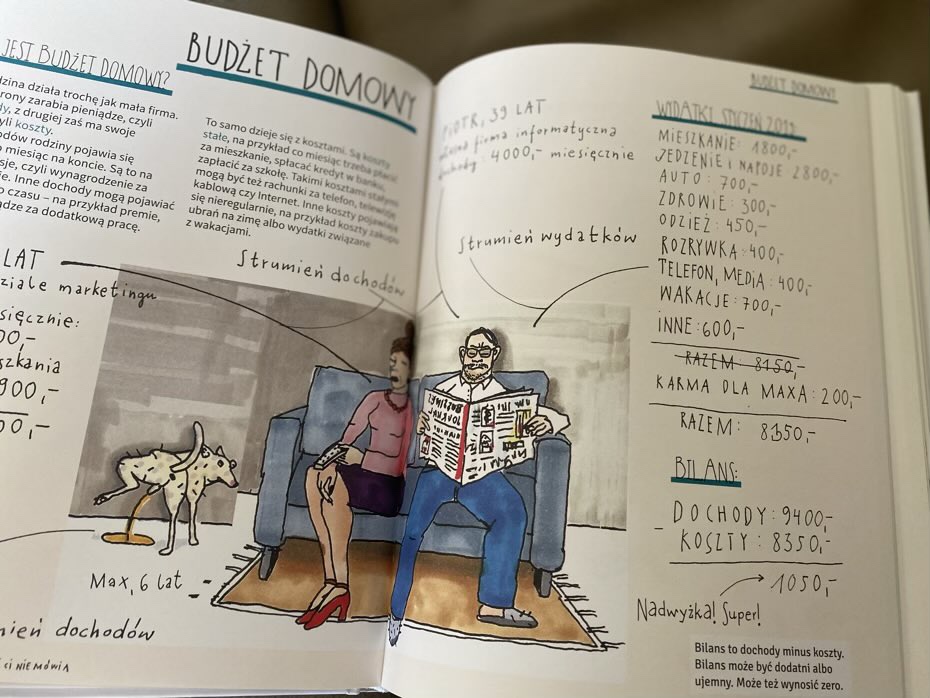 JEST BUDŻET DOMOWY?
działa trochę jak mała firma.
strony zarabia pieniądze, czyli
z drugiej zaś ma swoje
koszty.
rodziny pojawia się
miesiąc na koncie. Są to na
czyli wynagrodzenie za
Inne dochody mogą pojawiać
czasu – na przykład premie,
za dodatkową pracę.
BUDŻET DOMOWY
To samo dzieje się z kosztami. Są koszty
stałe, na przykład co miesiąc trzeba płacić
za mieszkanie, spłacać kredyt w banku,
zapłacić za szkołę. Takimi kosztami stałymi
mogą być też rachunki za telefon, telewizję
kablową czy Internet. Inne koszty pojawiają
się nieregularnie, na przykład koszty zakupu
ubrań na zimę albo wydatki związane
z wakacjami.
LAT
marketingu
900,-
Strumień dochodów
Max, 6 lat
dochodów
CI NIE MÓWIĄ
BUDŻET DOMOWY
PIOTR, 39 LAT
firma informatyczna
4000,- miesięcznie
Strumień wydatków
WYDATKI, STYCZEŃ
MIESZKANIE: 1800,-
JEDZENIE i NAPOJE: 2800,-
AUTO: 700,-
ZDROWIE: 300,-
ODZIEŻ: 450,-
ROZRYWKA: 400,-
TELEFON, MEDIA: 400,-
WAKACJE: 700,-
INNE: 600,-
RAZEM: 8150,-
KARMA DLA MAXA: 200,-
RAZEM: 8350,-
BILANS:
DOCHODY: 9400,-
- KOSZTY: 8350,-
1050,-
Nadwyżka! Super!
Bilans to dochody minus koszty.
Bilans może być dodatni albo
ujemny. Może też wynosić zero.